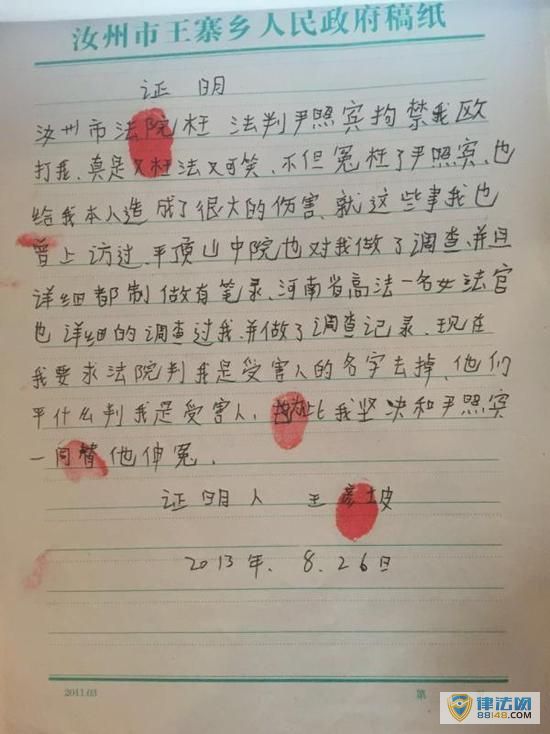 汝州市王寨乡人民政府稿纸
证明
汝州市法院枉 法判尹照宾拘禁我欧
打我、真是又枉法又可笑、不但冤枉了尹照宾、也
给我本人造成了很大的伤害、就这些事我也
曾上访过、平顶山中院也对我做了调查、并且
详细都制做有笔录、河南省高法一名女法官
也详细的调查过我、并做了调查记录、现在
我要求法院判我是受害人的名字去掉、他们
平什么判我是受害人、 我坚决和尹照宾
一同替他伸冤、
证明人 王彦坡
2013年、8、26日
2011.03 第
律法网
88148.COM